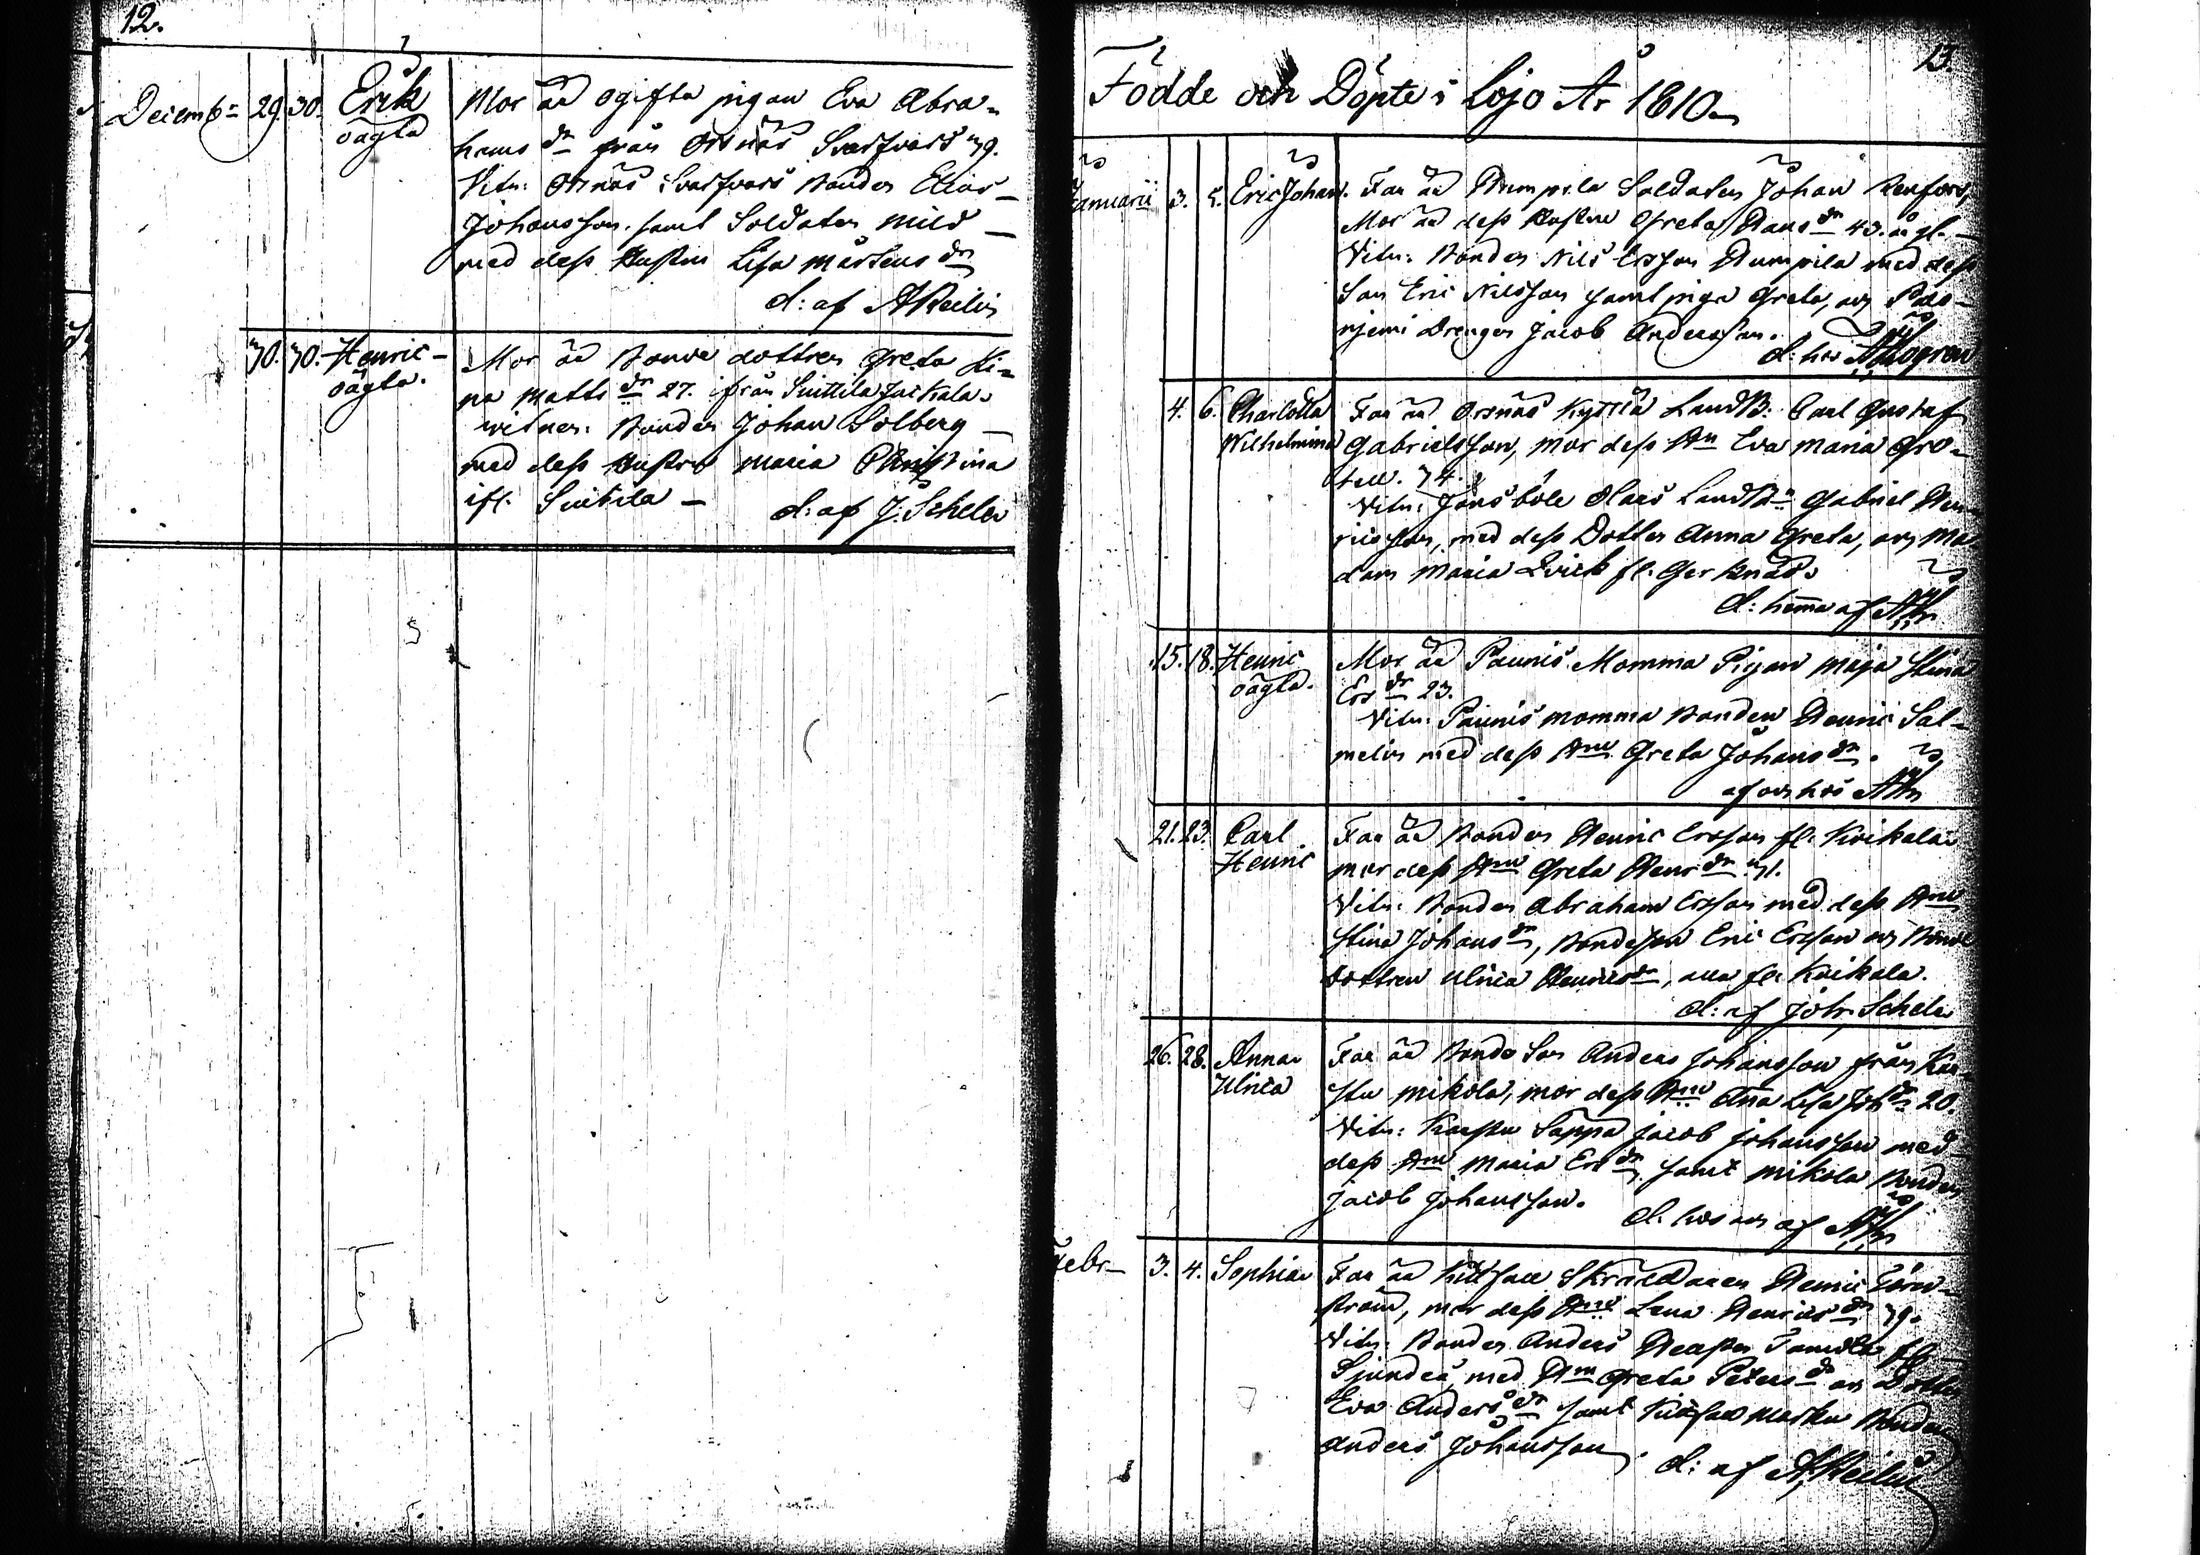 12.
Decemb= 29. 30. Erik oägta
Mor är ogifta pigan Eva Abra=
hams dr från Ormnäs Svarfvars 39.
Vitn: Ormnäs Svarfvars Bonden Elias
Johansson. samt Soldaten Mild
med dess Hustru Lisa Mårtens dr
d: af A Reilin
30. 30. Henric oägta.
Mor är Bonde dottren Greta Sti=
na Matts dr 27. ifrån Suittila
witnen: Bonden Johan Solberg
med dess Hustru Maria Christina
ifr. Suitila d: af J: Schele
13.
Födde och Döpte i Lojo År 1810
Januarii 3. 5. Eric Johan.
Far är Humppila Soldaten Johan Renfors,
Mor är dess Hustru Greta Hans dr 43. år gl.
Vitn: Bonden Nils Ersson Humpila med dess
Son Eric Nilsson samt piga Greta, och
njemi Drengen Jacob Andersson.
d: hos
4. 6. Charlotta Wilhelmina
Far är Ormnäs Kyrkiä LandB: Carl Gustaf
Gabrielsson, Mor dess Hu Eva Maria Gro=
tell. 34.
Vitn: Jönsböle Olars LandBn Gabriel Hen=
ricsson, med dess Dotter Anna Greta, och Ma
dam Maria Qvick fr. Gerknäs.
d: hema af
15. 18. Henric oägta.
Mor är Paunis Momma Pigan Maja Stina
Ers dr 23.
Vitn: Paunis Momma Bonden Henric Sal=
melin med dess Hu Greta Johans dr.
af och hos
21. 23. Carl Henric
Far är Bonden Henric Ersson fr. Koikala
mor dess Hu Greta Henr dr 31.
Vitn: Bonden Abraham Ersson med dess Hu
Stina Johans dr, Bondeson Eric Ersson och Bonde
dottren Ulrica Henrics dr, alla fr. Koikala.
d: af Joh. Schele
26. 28. Anna Ulrica
Far är Bonde Son Anders Johansson från Kar=
stu Mikola, mor dess Hu Ana Lisa Joh dr 20.
Vitn: Karstu Sappa Jacob Johansson med
dess Hu Maria Ers dr samt Mikola Bonden
Jacob Johansson. d. hos och af
Febr 3. 4. Sophia
Far är Skräddaren Henric
ström, mor dess Hu Lena Henrics dr 39.
Vitn: Bonden Anders
Sjundeå, med Hu Greta Peters dr och Dotter
Eva Anders dr samt Bonden
Anders Johansson d: af A Reilin